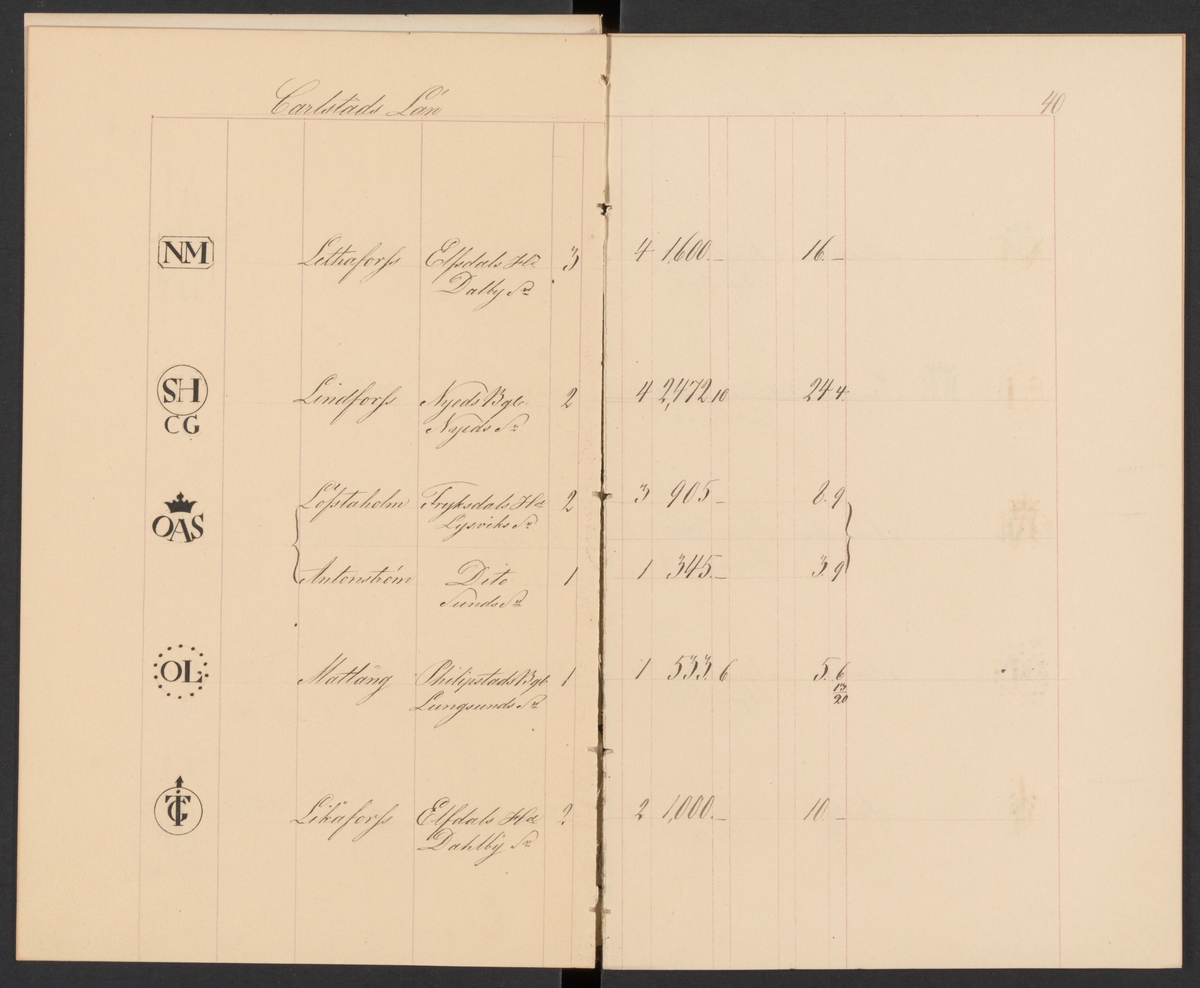 Carlstads Län
40
NM Lethaforss Elfsdals Hd 3 4 1,600.– 16.–
Dalby Sn
SH Lindforss Nyeds Bgl. 2 4 2,472 10 24 4.
CG Nyeds Sn
OAS Löfstaholm Fryksdals Hd 2 3 905.– 8. 9
Lysviks Sn
Antonström Dito 1 1 345.– 3. 9
Sunds Sn
OL Matläng Philipstads Bgl. 1 1 533. 6 5. 6
Lungsunds Sn 13/20
TG Likåforss Elfdals Hd 2 2 1,000.– 10.–
Dahlby Sn